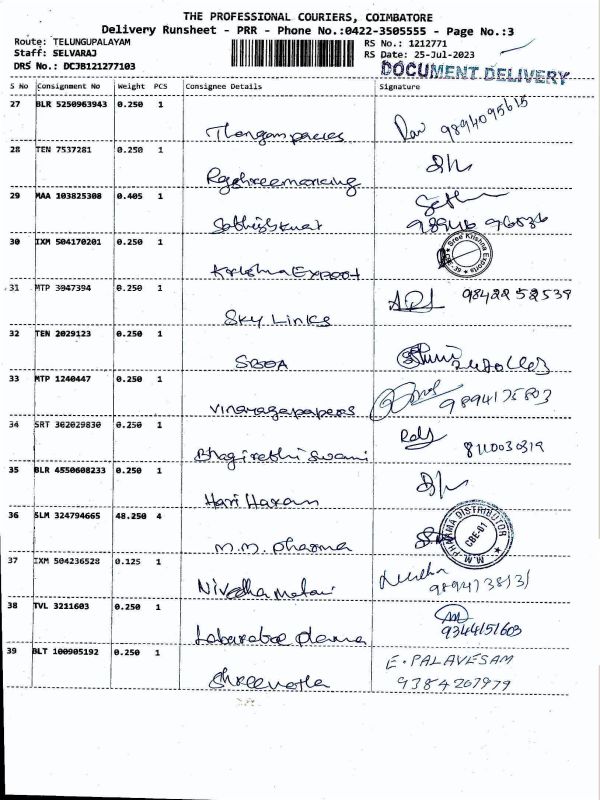 THE PROFESSIONAL COURIERS, COIMBATORE
Delivery Runsheet - PRR - Phone No.:0422-3505555 - Page No.:3
Route: TELUNGUPALAYAM RS No.: 1212771
Staff: SELVARAJ RS Date: 25-Jul-2023
DRS No.: DCJB121277103 DOCUMENT DELIVERY
S No Consignment No Weight PCS Consignee Details Signature
27 BLR 5250963943 0.250 1
9894095615
28 TEN 7537281 0.250 1
29 MAA 103825308 0.405 1
Sathishkumar 98946 96836
30 IXM 504170201 0.250 1
Krishna Export Sree Krishna Exports CBE-39
31 MTP 3947394 0.250 1
Sky Links 98422 52539
32 TEN 2029123 0.250 1
33 MTP 1240447 0.250 1
Vinayagapapers
34 SRT 302029830 0.250 1
Bhagirethi Swami 8110030319
35 BLR 4550608233 0.250 1
Hari Haran
36 SLM 324794665 48.250 4
M.M. Pharma M.M. PHARMA DISTRIBUTOR CBE-01
37 IXM 504236528 0.125 1
38 TVL 3211603 0.250 1
9344151603
39 BLT 100905192 0.250 1
E. PALAVESAM
9384207979